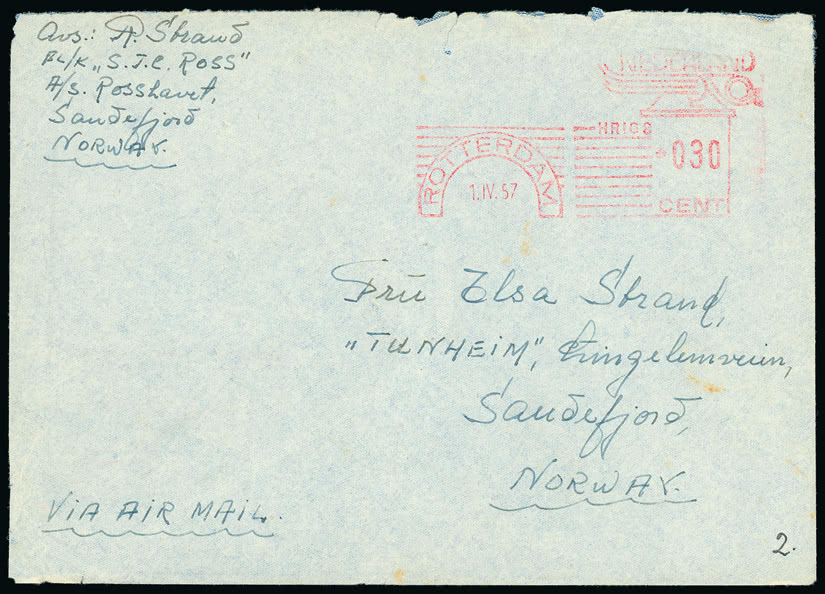 Avs.: A. Strand
BL/K „S.J.C. ROSS"
A/S. Rosshavet,
Sandefjord
NORWAY.
NEDERLAND
HR168
030
CENT
ROTTERDAM
1.IV.57
Fru Elsa Strand,
„TUNHEIM",
Sandefjord,
NORWAY.
VIA AIR MAIL.
2.